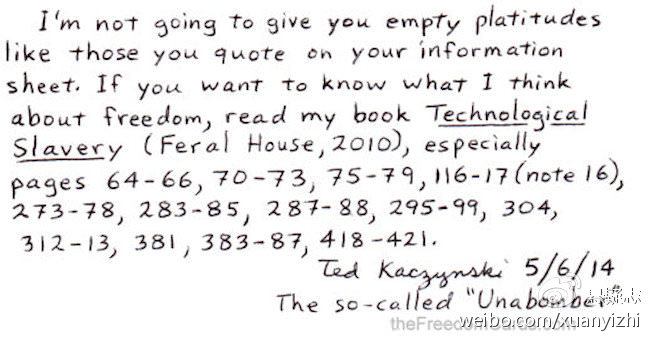 I'm not going to give you empty platitudes
like those you quote on your information
sheet. If you want to know what I think
about freedom, read my book Technological
Slavery (Feral House, 2010), especially
pages 64-66, 70-73, 75-79, 116-17 (note 16),
273-78, 283-85, 287-88, 295-99, 304,
312-13, 381, 383-87, 418-421.
Ted Kaczynski 5/6/14
The so-called "Unabomber"
theFreedomCards.com
weibo.com/xuanyizhi